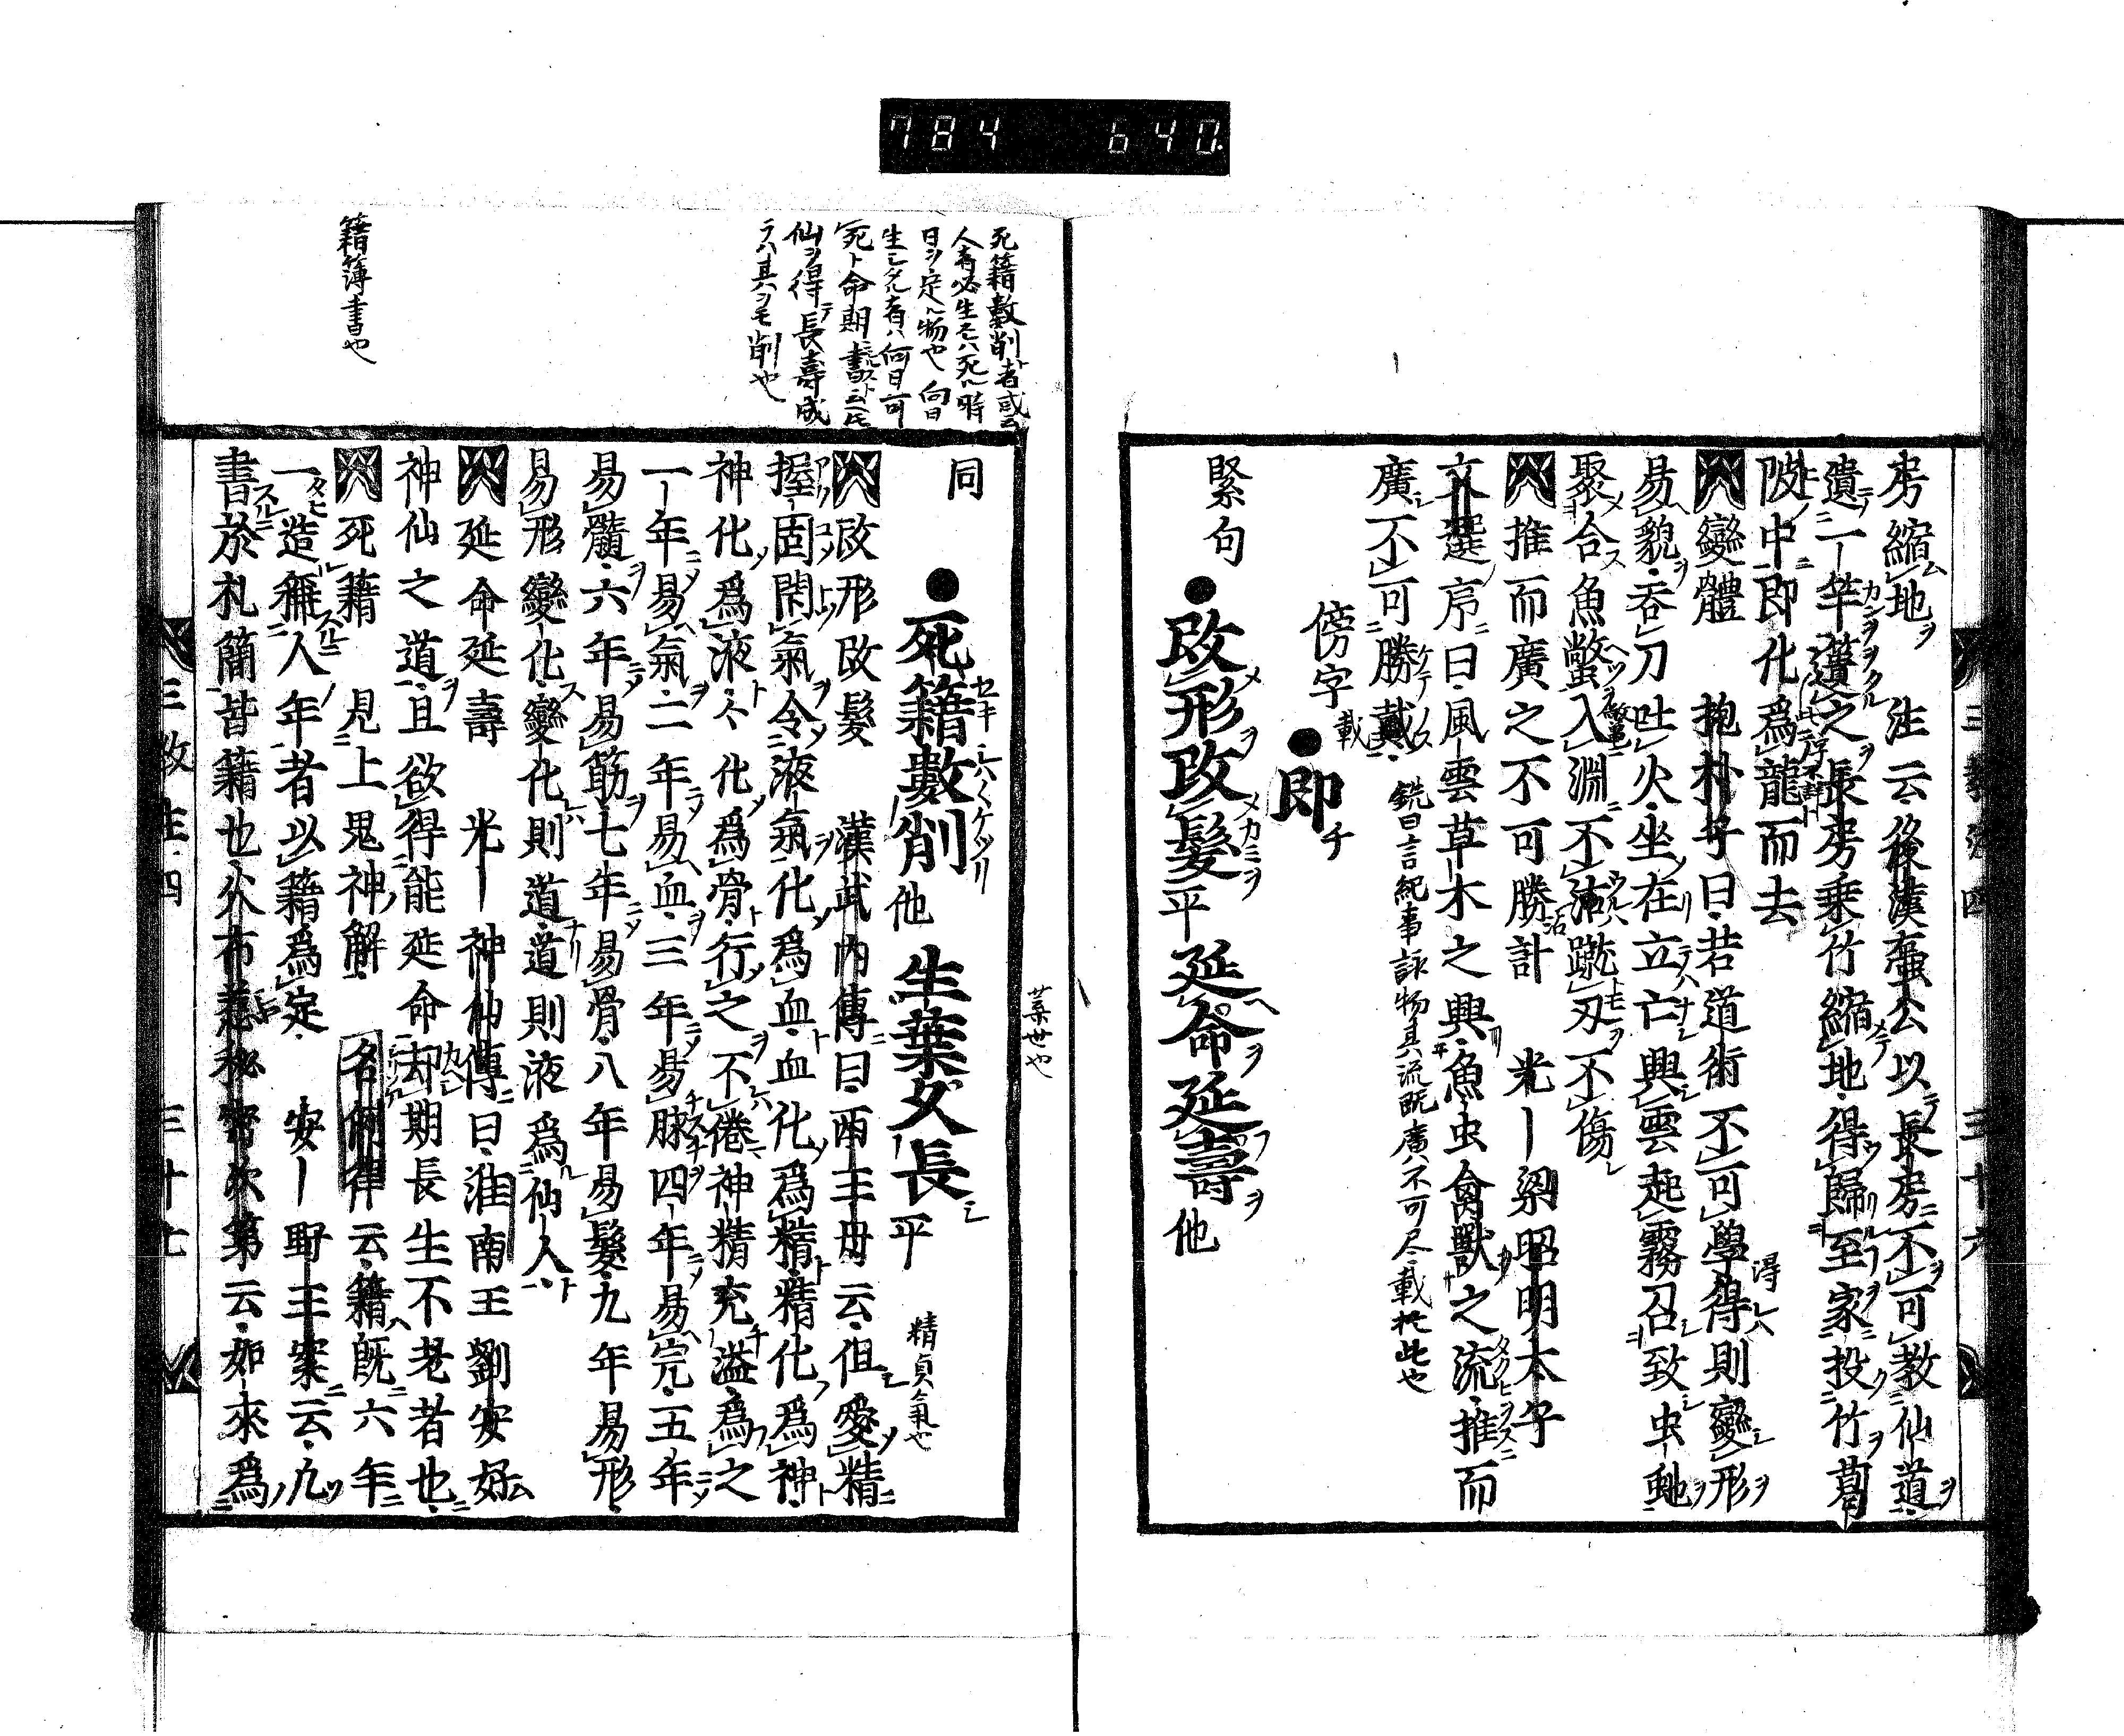 784 640.
房縮地 注云後漢壺公以長房不可教仙道
遺一竿遣之長房乗竹縮地得歸至家投竹葛
陂中即化爲龍而去
變體 抱朴子曰若道術不可學得則變形
易貌吞刀吐火坐在立亡興雲起霧召致虫虵
聚合魚鼈入淵不沾蹴刃不傷
推而廣之不可勝計 光ー梁昭明太子
文選序曰風雲草木之興魚虫禽獸之流推而
廣不可勝載 銑曰言紀事詠物其流既廣不可尽載於此也
傍字 ●即チ
緊句 ●改形改髮平延命延壽他
三教注四 三十六
死籍數削者或云
人者必生死時
日ヲ定ル物也 向日
生シタル者ハ何日可
死ト命期書
仙ヲ得テ長壽成
ラハ其ヲモ削也
籍簿書也
同 ●死籍數削他 生葉久長平
葉世也
精貞氣也
改形改髮 漢武内傳曰西王母云但愛精
握固閑氣令液氣化爲血血化爲精精化爲神
神化爲液々化爲骨行之不倦神精充溢爲之
一年易氣二年易血三年易脉四年易完五年
易髓六年易筋七年易骨八年易髮九年易形
易形變化變化則道道則液爲仙人
延命延壽 光ー神仙傳曰淮南王劉安好
神仙之道且欲得能延命却期長生不老者也
死籍 見上鬼神解 名例律云籍既六年
一造稱人年者以籍爲定 安ー野王案云九
書於札簡皆籍也 次第云如來爲
三教注四 三十七